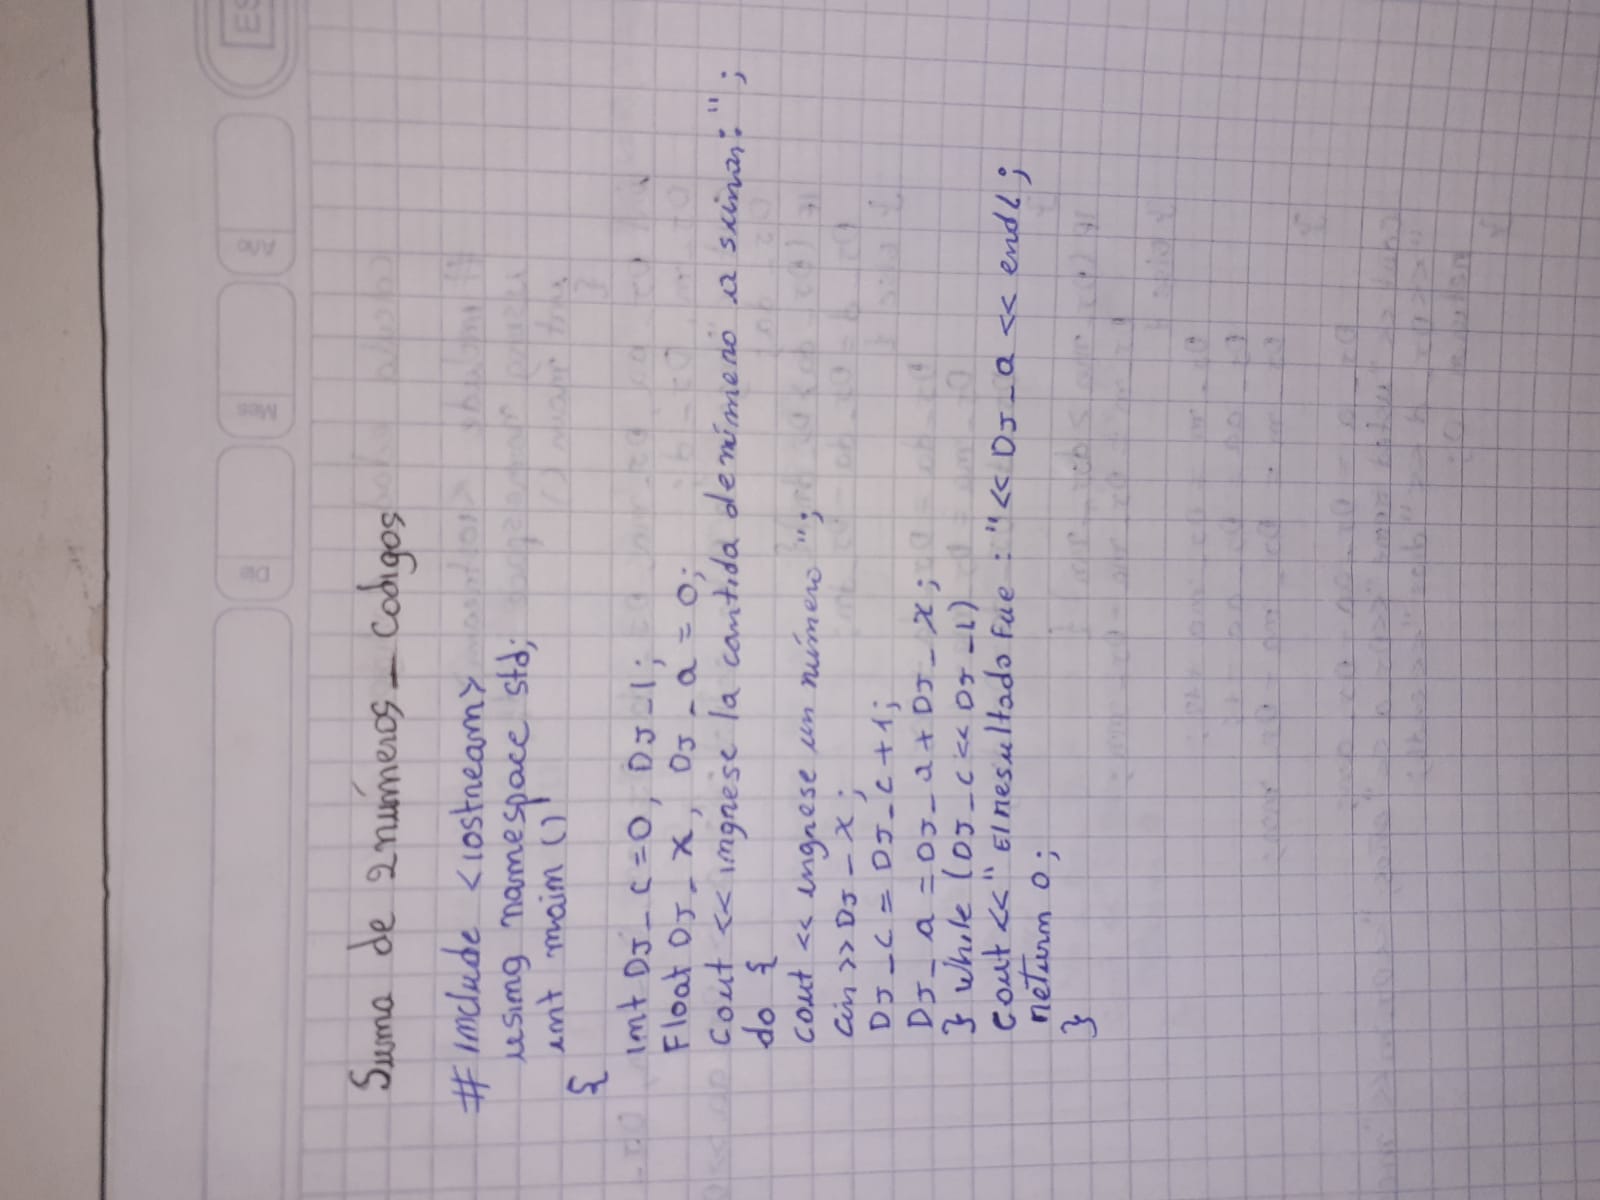 Dia
Mes
Año
ES
Suma de 2 números - Codigos
# include <iostream>
using namespace std;
int main ()
{
int DJ_c=0, DJ_1;
Float DJ_x, DJ_a = 0;
cout << ingrese la cantida de nímero a sumar: ";
do {
cout << ingrese un número ";
cin >> DJ_x;
DJ_c = DJ_c+1;
DJ_a = DJ_a + DJ_x;
} while (DJ_c << DJ_L)
cout <<" El resultado Fue : "<< DJ_a << endl;
return 0;
}